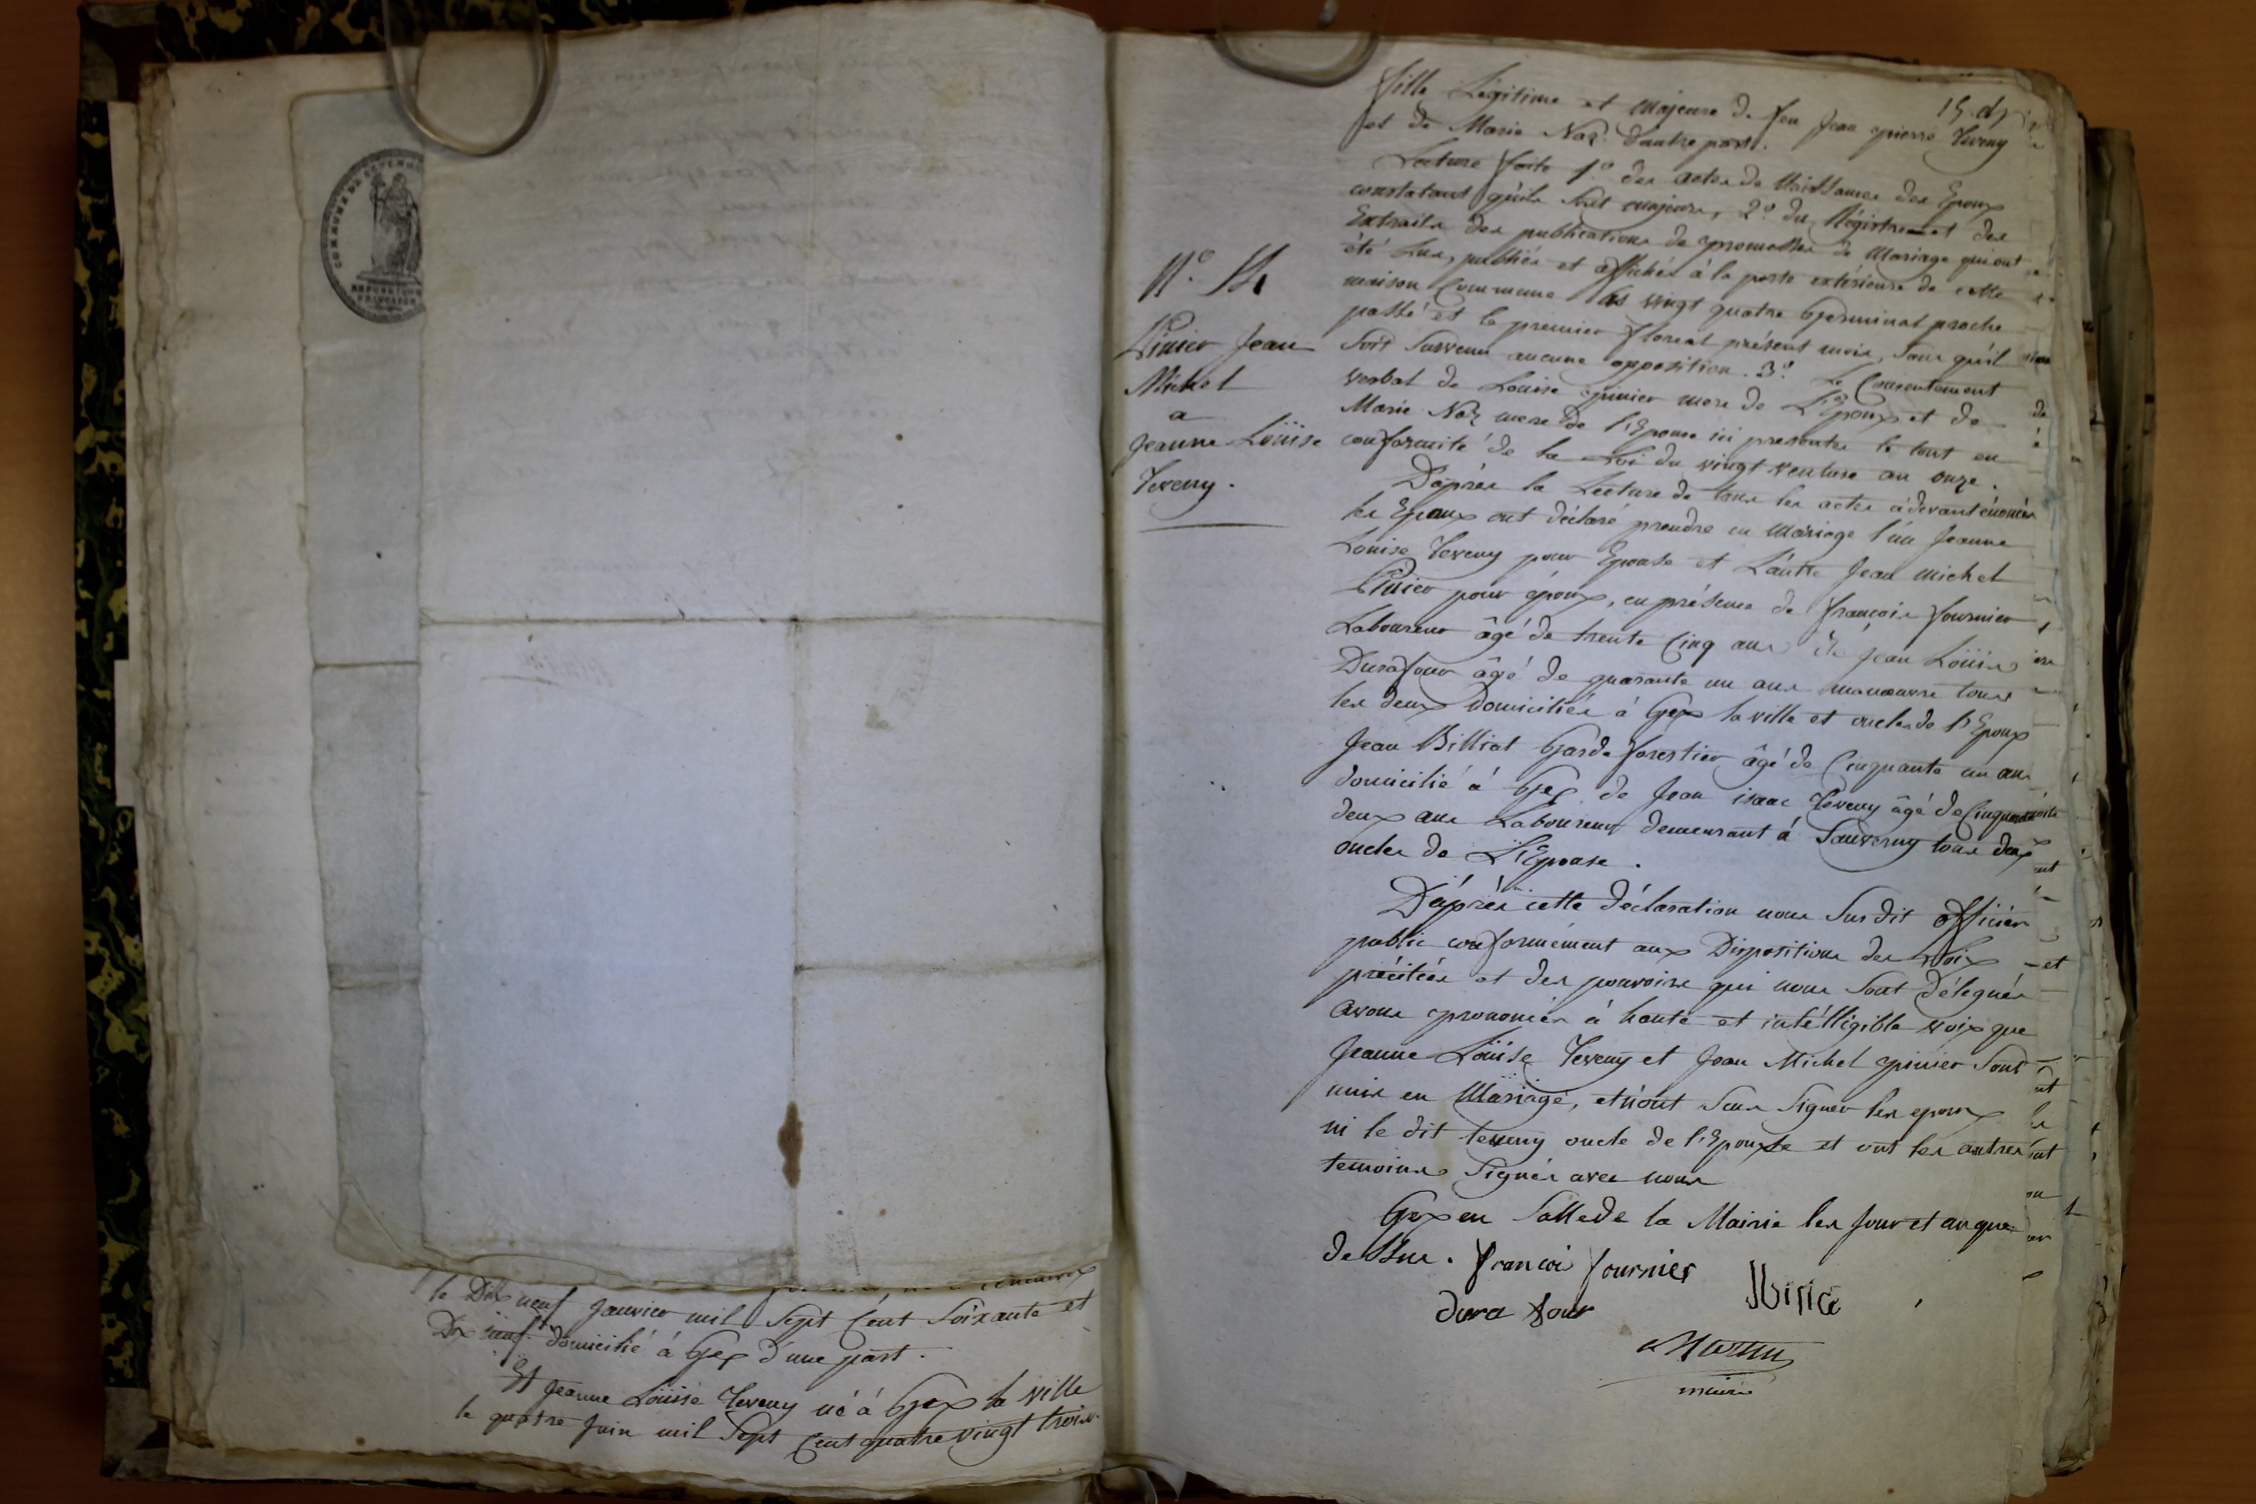 COMMUNE DE
REPUBLIQUE
FRANCAISE
le Dix neuf Janvier mil Sept Cent Soixante et
Dix neuf domicilié à Gex d'une part.
Et Jeanne Loüise Teveny né à Gex la ville
le quatre Juin mil Sept Cent quatre vingt trois
fille Légitime et Majeure de feu Jean pierre Teveny
et de Marie Naz d'autre part.
Lecture faite 1º des actes de Naissances des Epoux
constatant qu'ils sont majeurs, 2º du Régistre et des
Extraits des publications de promesses de Mariage qui ont
été Lues, publiées et affichées à la porte extérieure de cette
maison Commune les vingt quatre Germinal proche
passé et le premier floreal présent mois, sans qu'il
soit Survenu aucune opposition. 3º Le Consentement
verbal de Louise pinier mere de L'Epoux et de
Marie Naz mere de l'Epouse ici presentes le tout en
conformité de la Loi du vingt ventose an onze.
D'après la Lecture de tous les actes cidevant énoncés
les Epoux ont déclaré prendre en Mariage l'un Jeanne
Louise Teveny pour Epouse et L'autre Jean Michel
Pinier pour époux, en présence de françois fournier
Laboureur âgé de trente Cinq ans de Jean Loüis
Durafour âgé de quarante un ans manœuvre tous
les deux Domiciliés à Gex la ville et oncles de l'Epoux
Jean Billiat Garde forestier âgé de Cinquante un ans
domicilié à Gex de Jean isaac Teveny âgé de Cinquante
deux ans Laboureur demeurant à Sauverny tous deux
oncles de L'Epouse.
D'après cette déclaration nous Susdit officier
public conformément aux Dispositions des Loix
précitées et des pouvoirs qui nous Sont Délégués
avons prononcés à haute et intélligible voix que
Jeanne Loüise Teveny et Jean Michel pinier Sont
unis en Mariage, et n'ont Seus Signer les epoux
ni le dit teveny oncle de l'Epouse et ont les autres
temoins Signés avec nous
Gex en Salle de la Mairie les Jour et an que
dessus. francoi fournier
dura four
Martin
maire
Pinier Jean
Michel
a
Jeanne Loüise
Teveny.